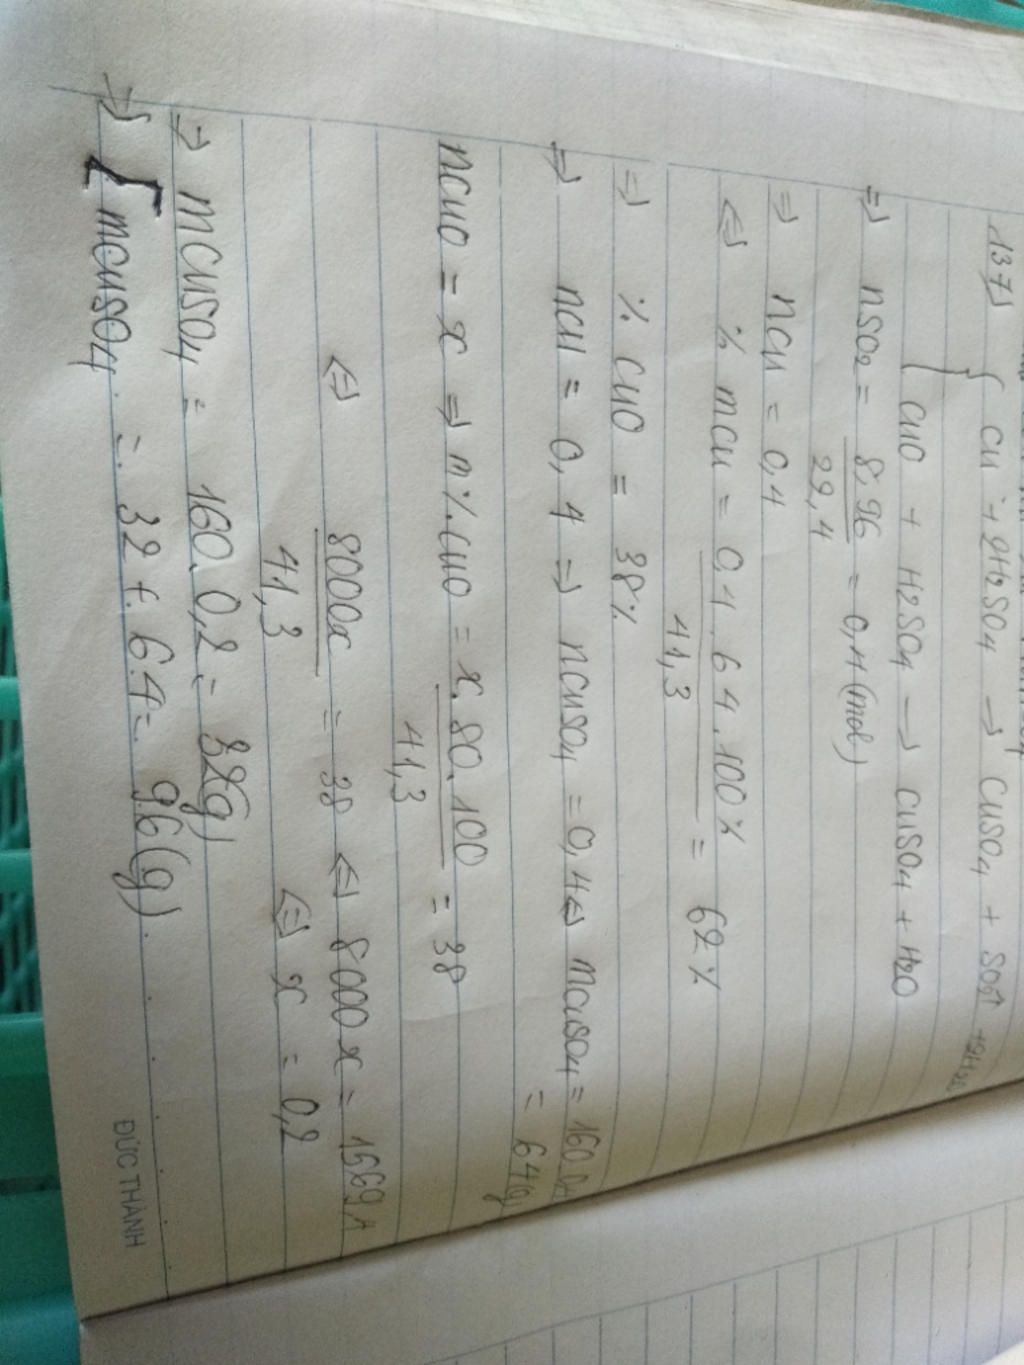 137)
{ Cu + 2H2SO4 → CuSO4 + SO2↑ + 2H2O
CuO + H2SO4 → CuSO4 + H2O
⇒ nSO2 = 8,96 / 22,4 = 0,4 (mol)
⇒ nCu = 0,4
⇔ % mCu = 0,4.64.100% / 41,3 = 62%
⇒ % CuO = 38%
⇒ nCu = 0,4 ⇒ nCuSO4 = 0,4 ⇔ mCuSO4 = 160.0,4
= 64(g)
nCuO = x ⇒ m%.CuO = x.80.100 / 41,3 = 38
⇔ 8000x / 41,3 = 38 ⇔ 8000x = 1569,4
⇔ x = 0,2
⇒ mCuSO4 = 160.0,2 = 32(g)
⇒ [mCuSO4 = 32 + 64 = 96(g).
ĐỨC THÀNH